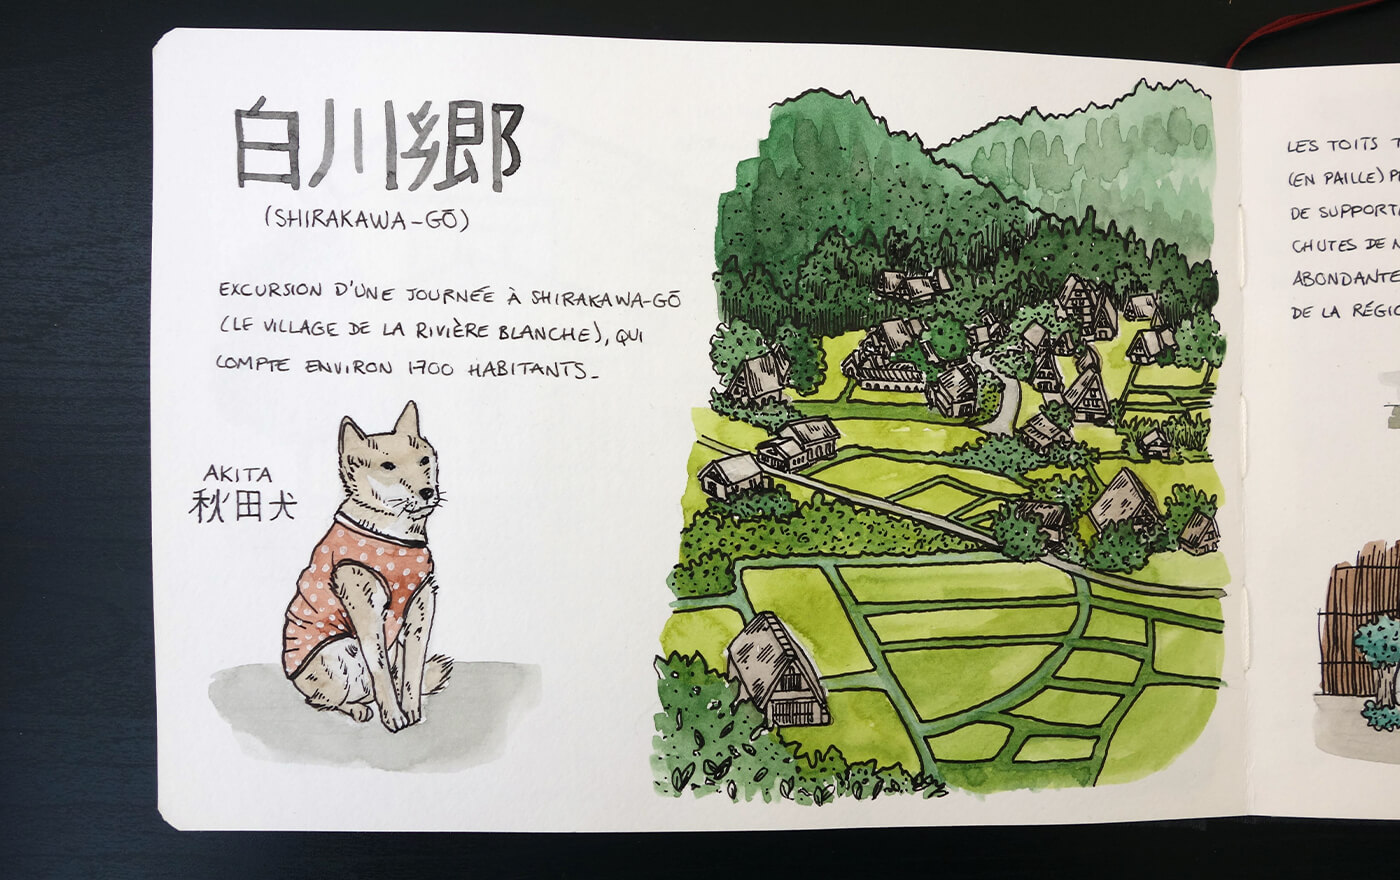 白川郷
(SHIRAKAWA-GŌ)
EXCURSION D'UNE JOURNÉE À SHIRAKAWA-GŌ
(LE VILLAGE DE LA RIVIÈRE BLANCHE), QUI
COMPTE ENVIRON 1700 HABITANTS_
AKITA
秋田犬
LES TOITS
(EN PAILLE)
DE
CHUTES DE
DE LA